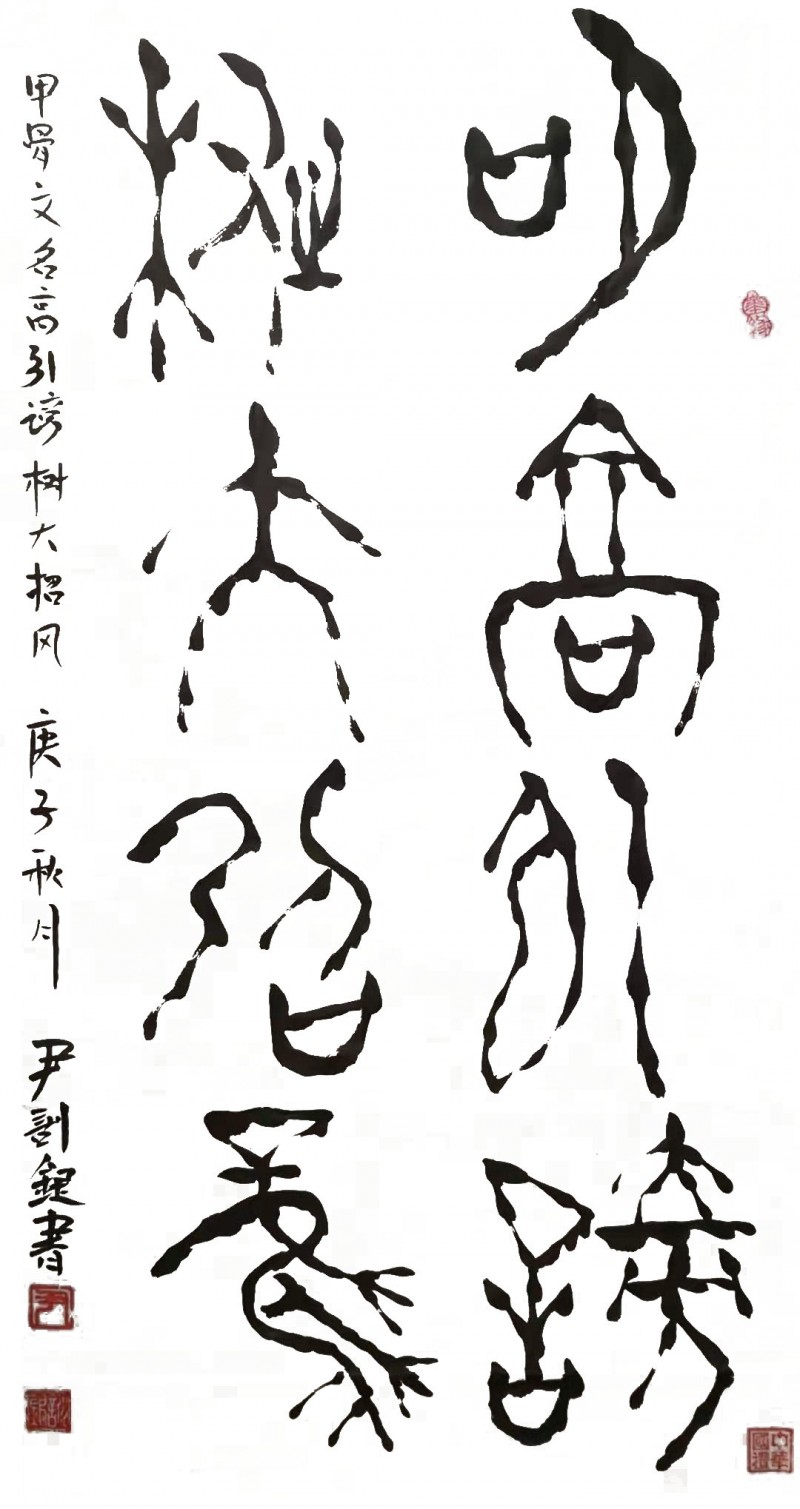 名高引谤
树大招风
甲骨文名高引谤树大招风 庚子秋月 尹剑锟书